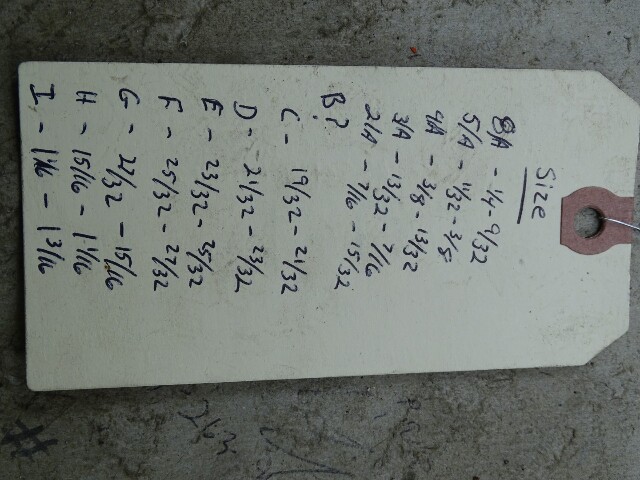 Size
8/A - 1/4 - 9/32
5/A - 11/32 - 3/8
4A - 3/8 - 13/32
3/A - 13/32 - 7/16
2/A - 7/16 - 15/32
B?
C - 19/32 - 21/32
D - 21/32 - 23/32
E - 23/32 - 25/32
F - 25/32 - 27/32
G - 27/32 - 15/16
H - 15/16 - 1 1/16
I - 1 1/16 - 1 3/16
#